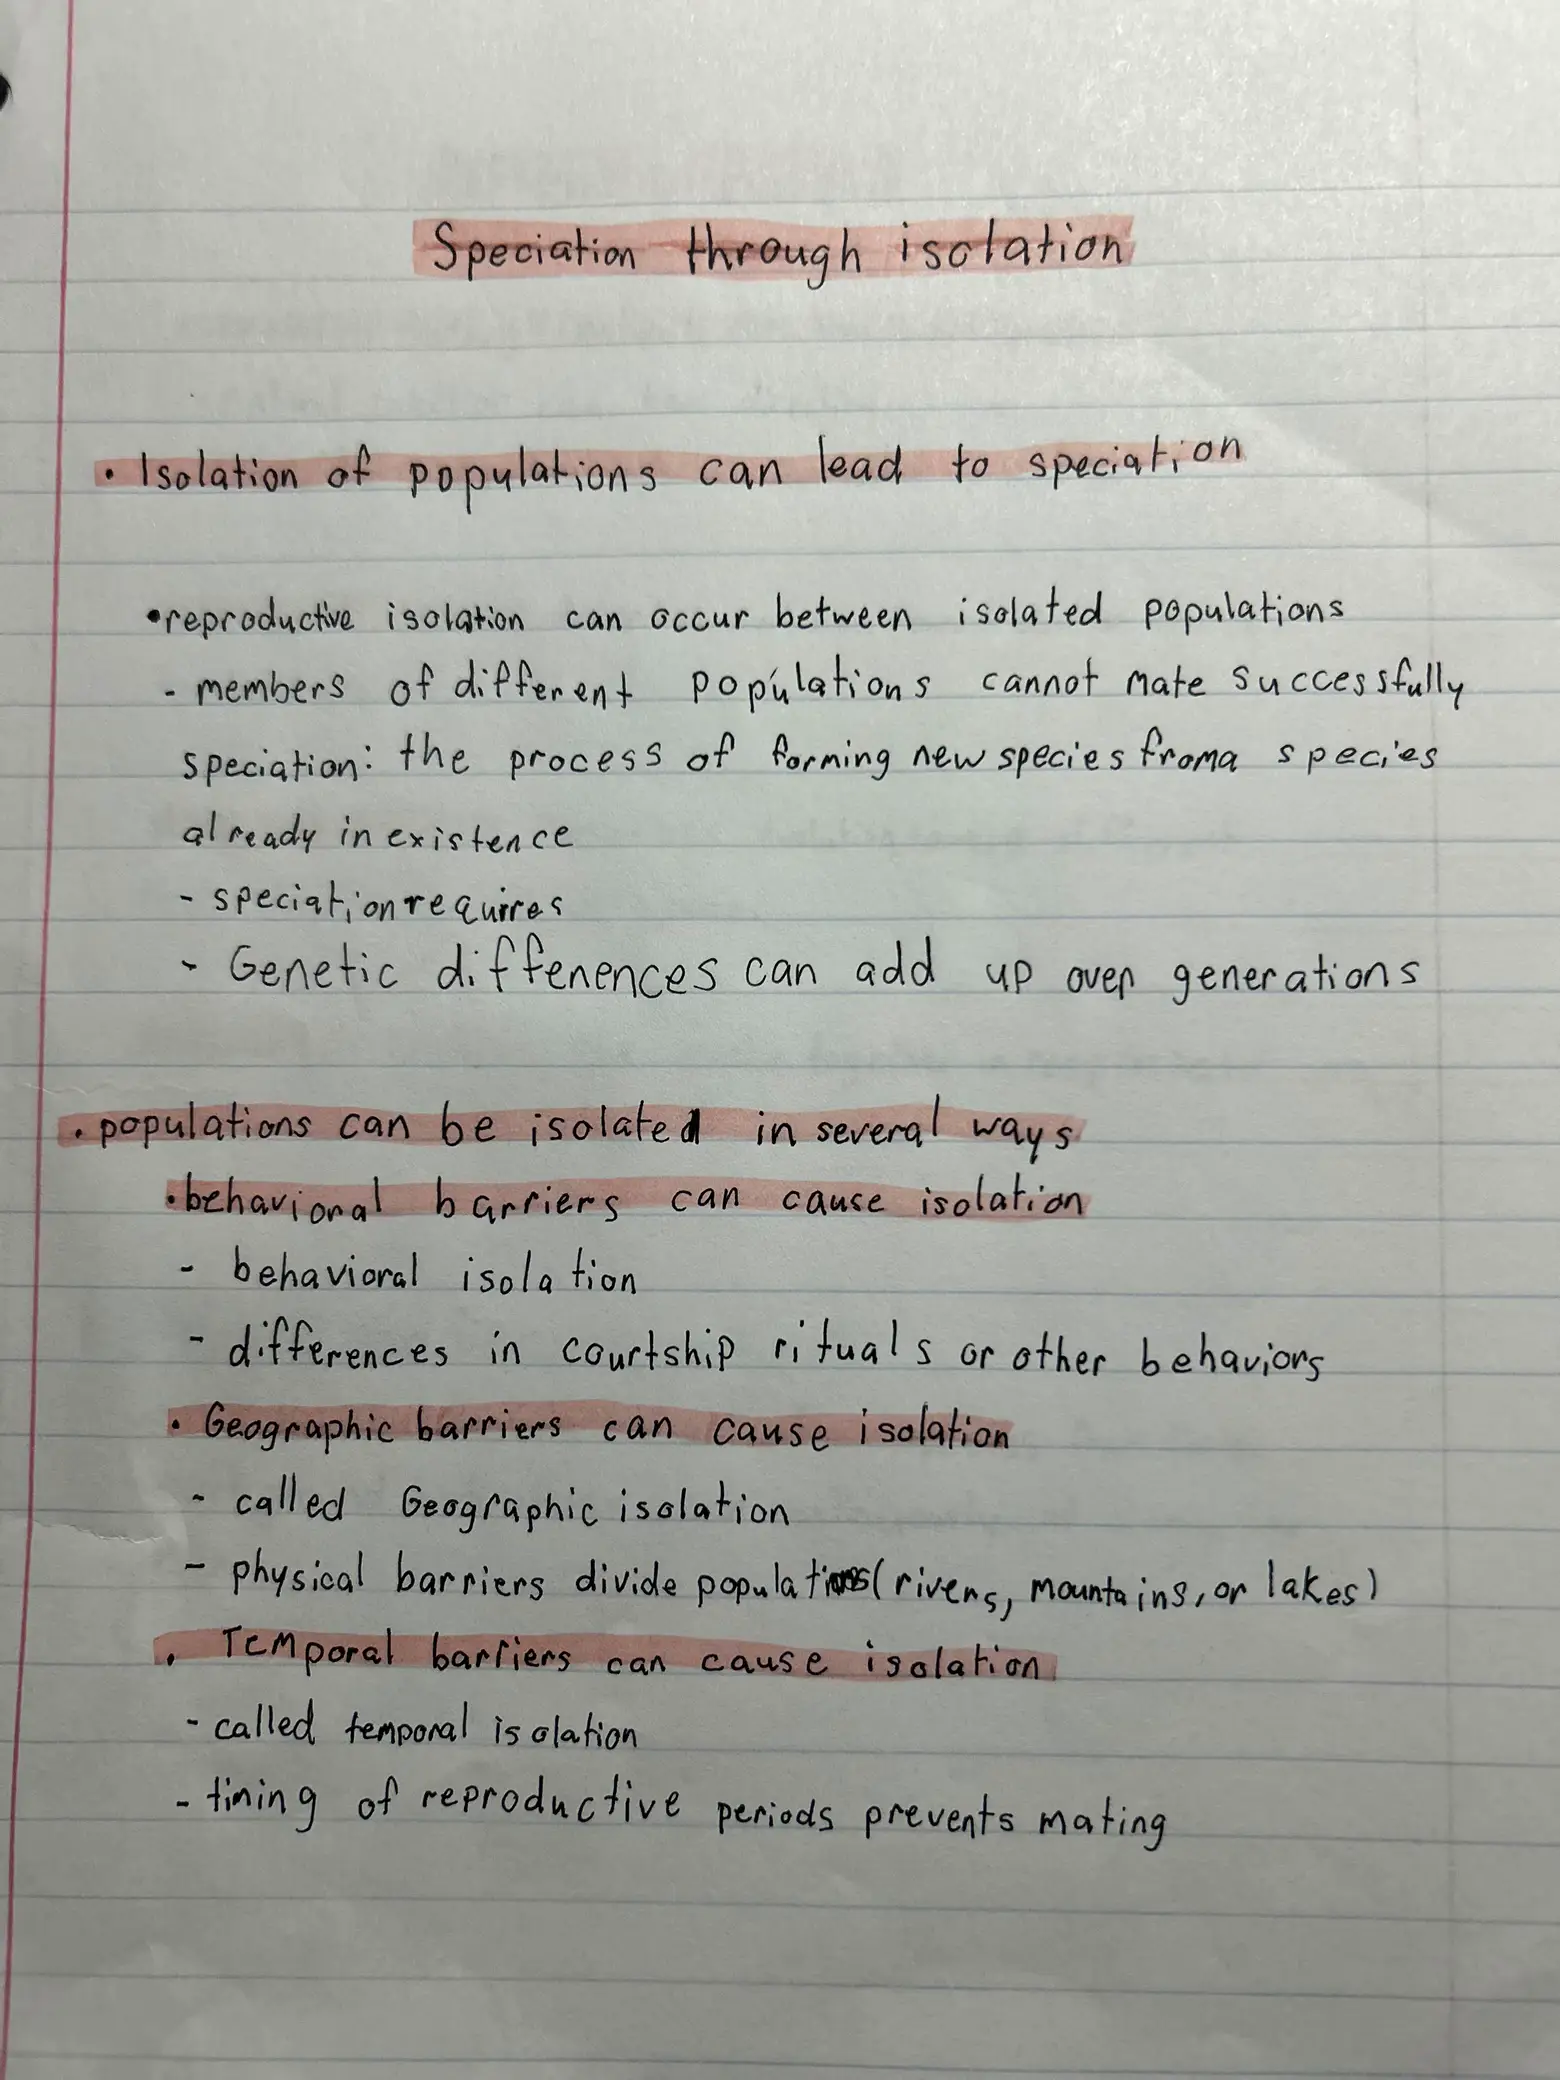 Speciation through isolation
• Isolation of populations can lead to speciation
• reproductive isolation can occur between isolated populations
- members of different populations cannot mate successfully
speciation: the process of forming new species from a species
already in existence
- speciation requires
- Genetic differences can add up over generations
• populations can be isolated in several ways
• behavioral barriers can cause isolation
- behavioral isolation
- differences in courtship rituals or other behaviors
• Geographic barriers can cause isolation
- called Geographic isolation
- physical barriers divide populations (rivers, mountains, or lakes)
• Temporal barriers can cause isolation
- called temporal isolation
- timing of reproductive periods prevents mating